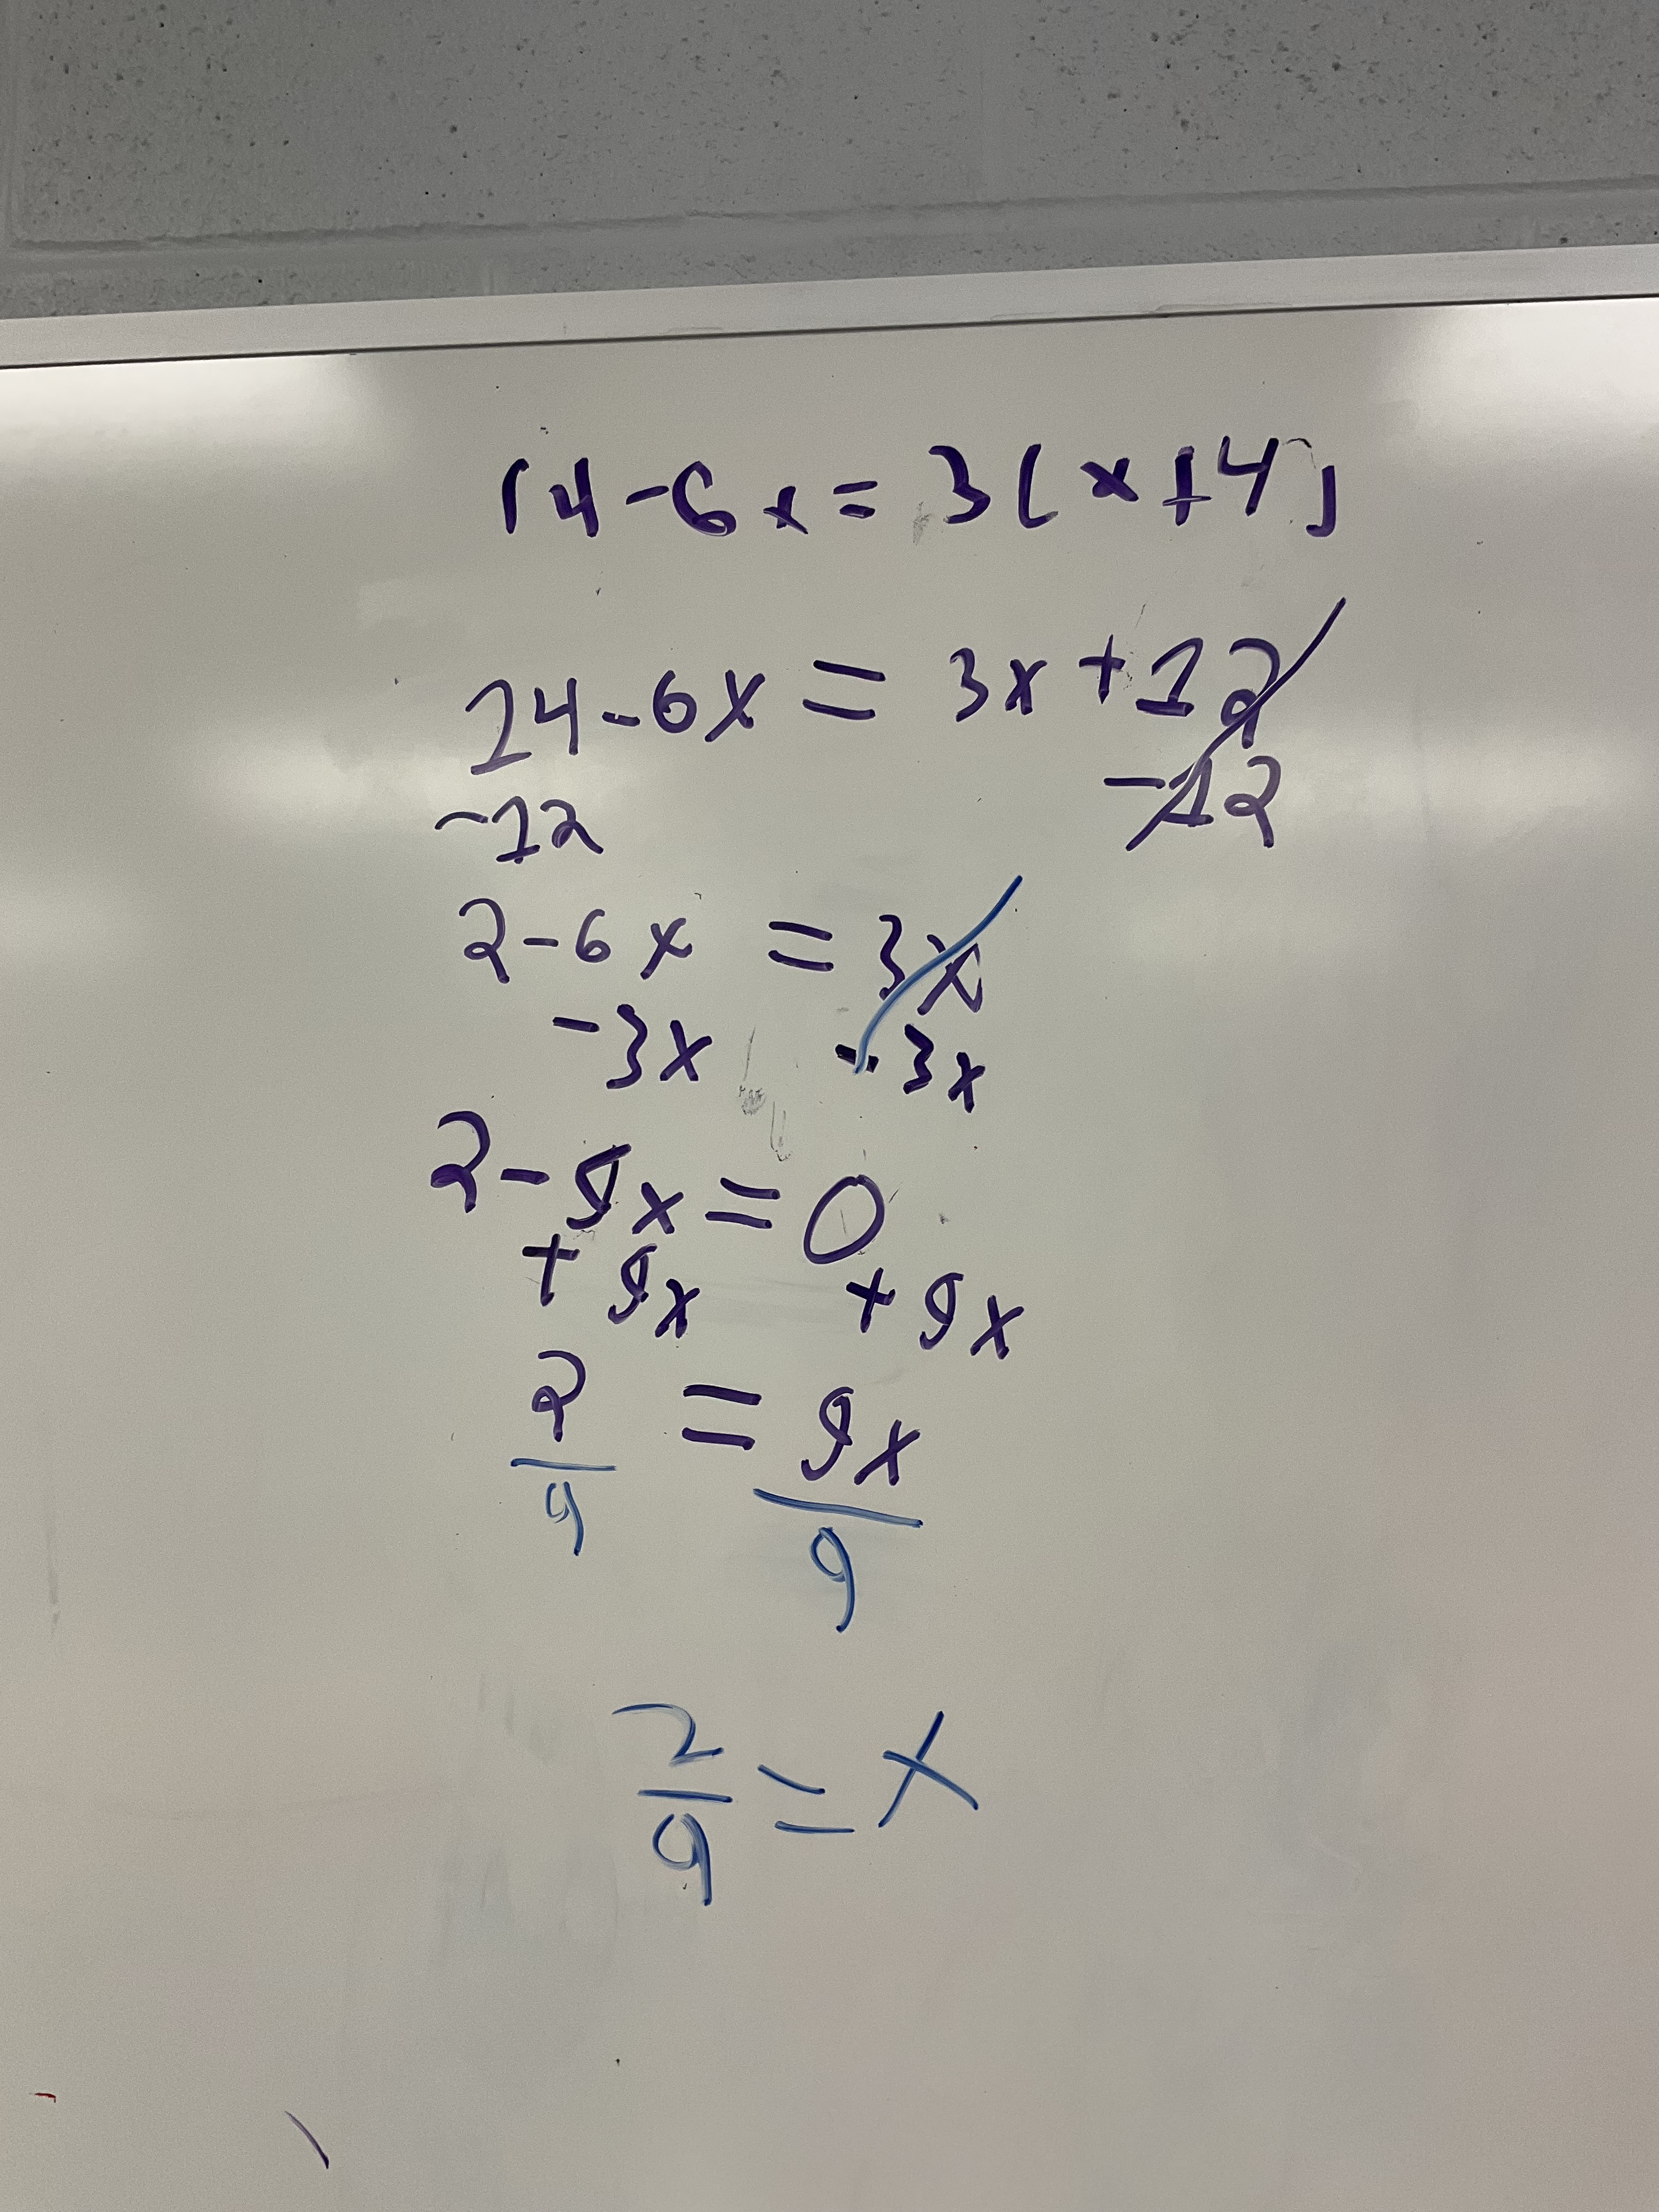 14-6x=3(x+4)
14-6x=3x+12
-12 -12
2-6x=3x
-3x -3x
2-9x=0
+9x +9x
2=9x
9 9
2
9=x